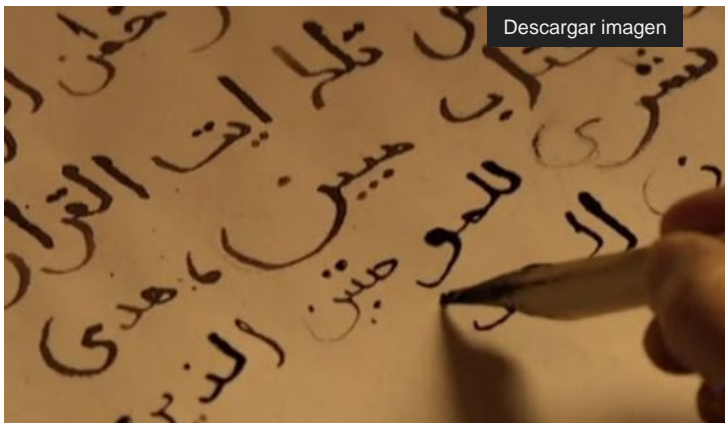 Descargar imagen
تلك ايت القران
كتاب مبين ، هدى
بشرى للمومنين الذين